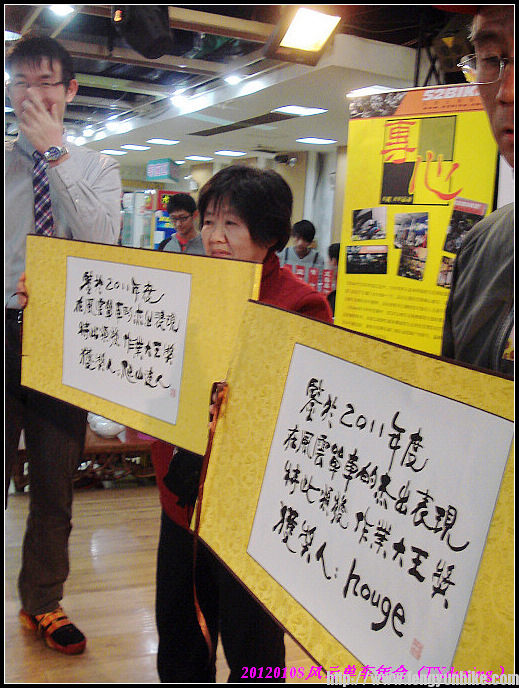 SZBIK
真
心
鑒於2011年度
在風雲單車的杰出表現
特此頒發 作業大王獎
獲獎人：爬山達人
鑒於2011年度
在風雲單車的杰出表現
特此頒發 作業大王獎
獲獎人：houge
20120108风云单车年会